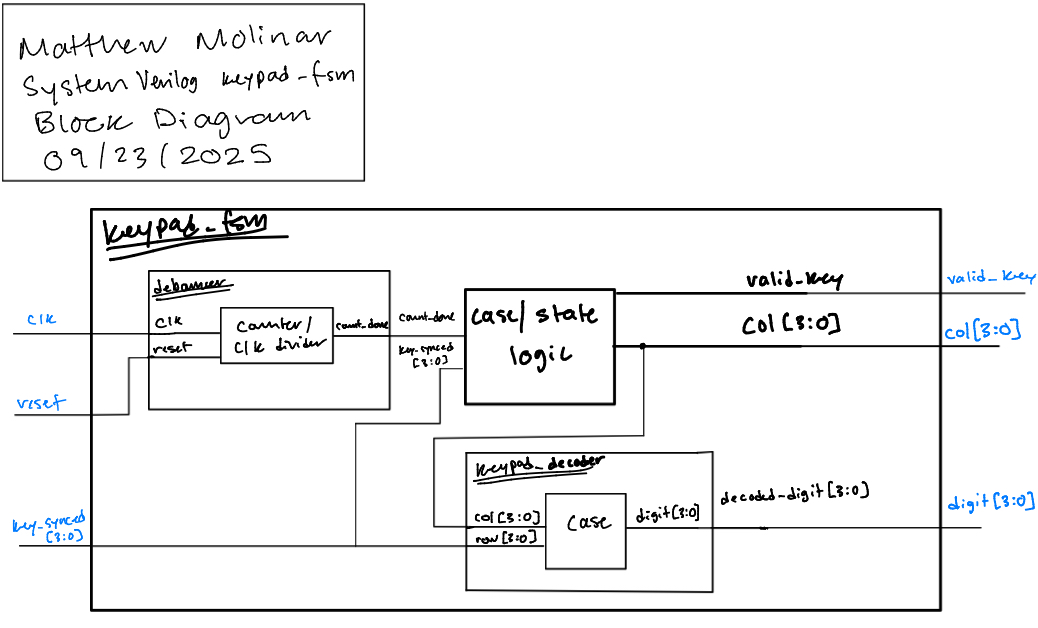 Matthew Molinar
System Verilog keypad_fsm
Block Diagram
09/23/2025
keypad_fsm
debouncer
clk
clk
reset
counter/
clk divider
count_done
count_done
key_synced
[3:0]
case/state
logic
valid_key
col[3:0]
valid_key
col[3:0]
reset
keypad_decoder
col[3:0]
row[3:0]
case
digit[3:0]
decoded-digit[3:0]
digit[3:0]
key_synced
[3:0]